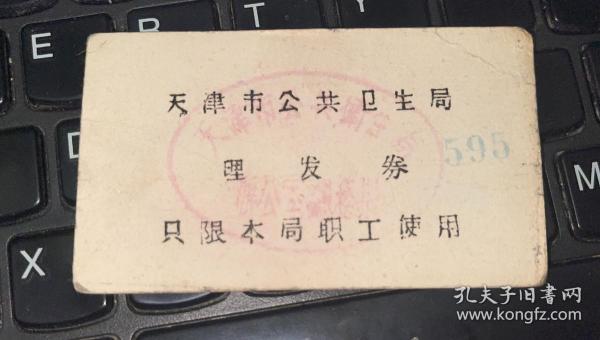 天津市公共卫生局
595
理发券
只限本局职工使用
E
R
X
孔夫子旧書网
www.kongfz.com